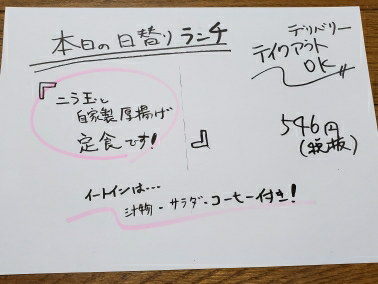 本日の日替りランチ
デリバリー
テイクアウト
OK
『ニラ玉と
自家製厚揚げ
定食です!』
546円
(税抜)
イートインは…
汁物・サラダ・コーヒー付き!